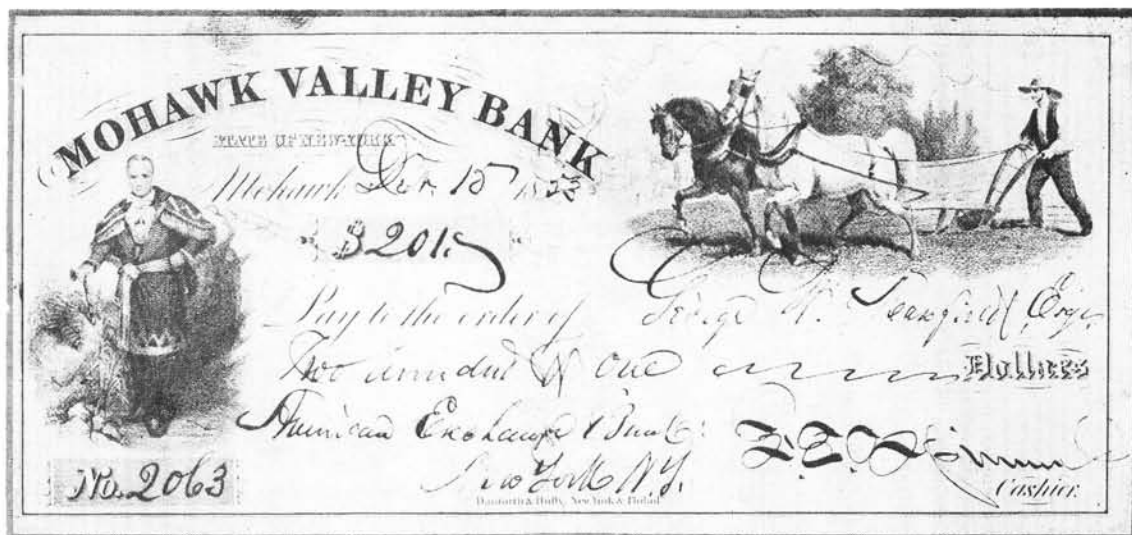 MOHAWK VALLEY BANK
STATE OF NEW-YORK
Mohawk Dec. 15 18
$201.
Pay to the order of George W.
Two Hundred & One Dollars
American Exchange Bank:
New York N.Y.
No. 2063
Cashier.
Danforth & Hufty, New York & Philad.